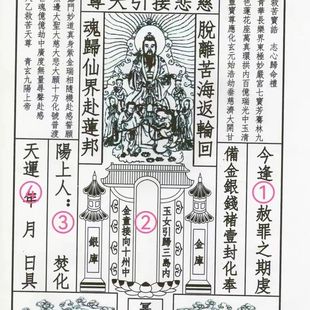 慈悲接引大尊
救苦寶誥 志心歸命禮
青華長樂界東極妙嚴宮七寶芳騫林九
色蓮花座萬真環拱內百億瑞光中玉清
靈寶尊應化玄元始浩劫垂慈濟大開甘
門妙道真身紫金瑞相隨機赴感誓願
邊大聖大慈大悲大願十方化號普渡
魂億億劫中度廣無量尋聲赴感
乙救苦天尊 青玄九陽上帝
脫離苦海返輪回
魂歸仙界赴蓮邦
今逢①赦罪之期度
備金銀錢褚壹封化奉
金庫
玉女引歸三島內
②
金童接向十州中
銀庫
陽上人：③ 焚化
天運④年 月 日具